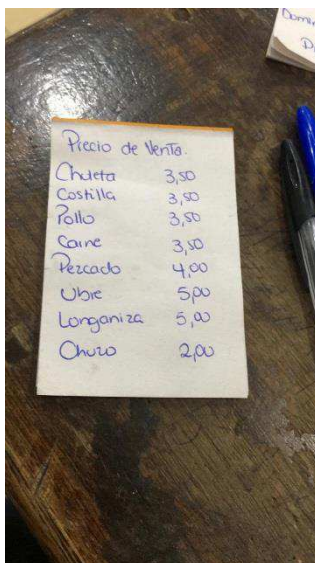 Precio de Venta.
Chuleta 3,50
Costilla 3,50
Pollo 3,50
Carne 3,50
Pezcado 4,00
Ubre 5,00
Longaniza 5,00
Chuzo 2,00